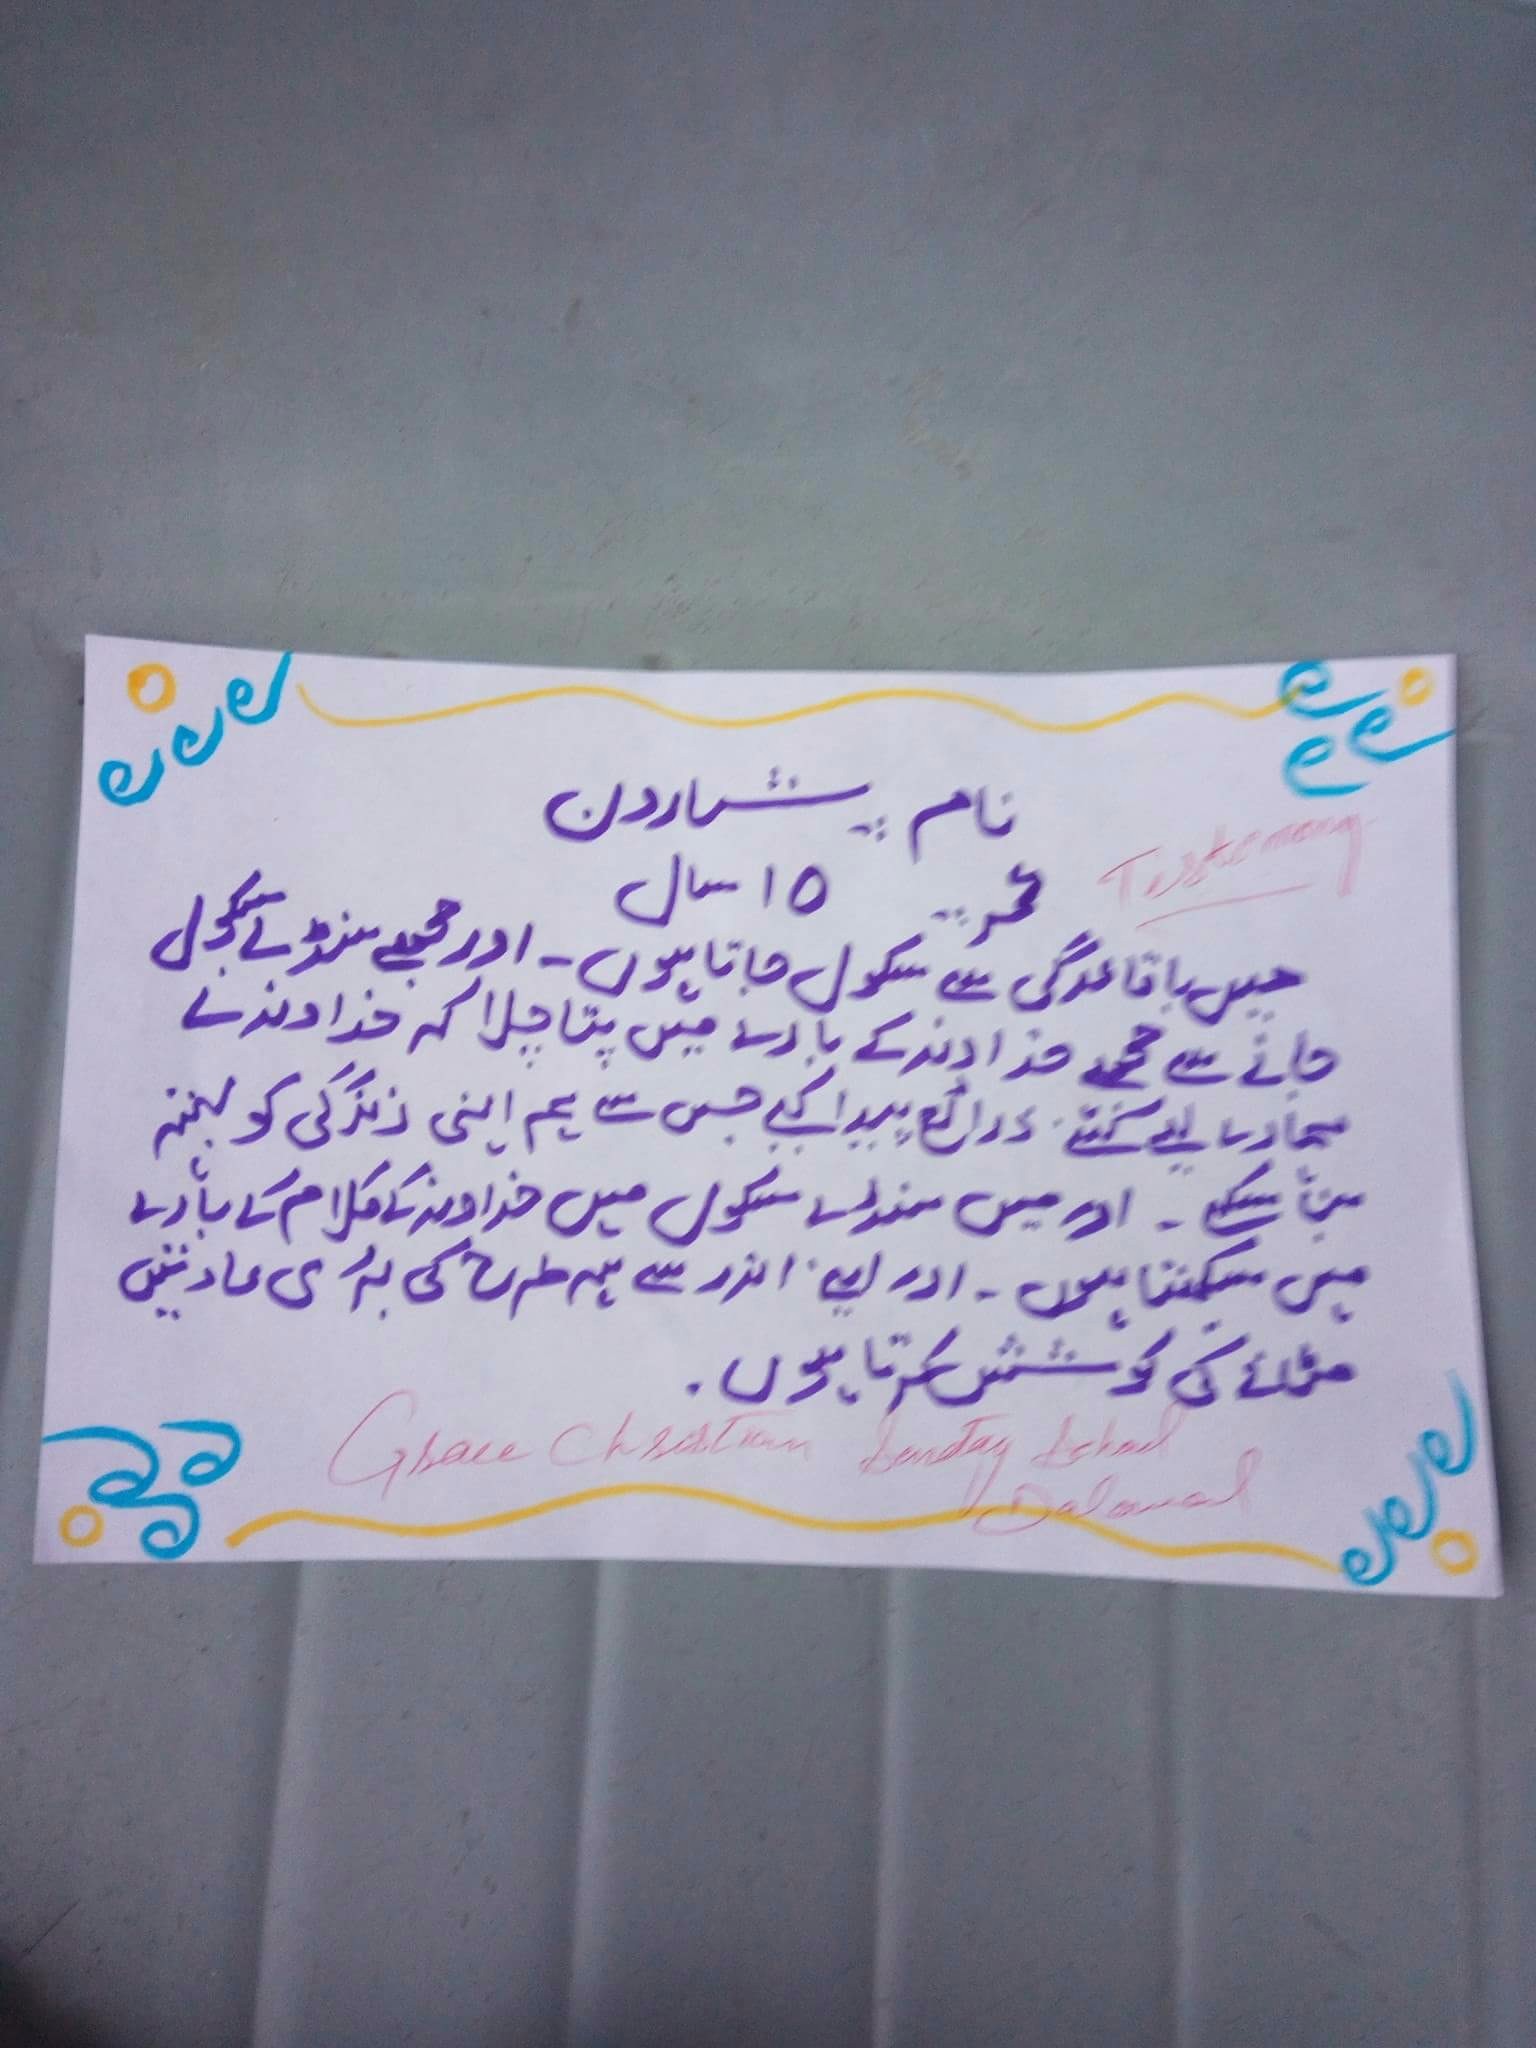 نام :۔ شماردن
Testemony
عمر :۔ 15 سال
میں باقاعدگی سے سکول جاتا ہوں ۔ اور مجھے سنڈے سکول
جانے سے مجھے خداوند کے بارے میں پتا چلا کہ خداوند نے
ہمارے لیے کتنے ذرائع پیدا کیے جس سے ہم اپنی زندگی کو بہتر
بنا سکے ۔ اور میں سنڈے سکول میں خداوند کے کلام کے بارے
میں سیکھتا ہوں ۔ اور اپنے اندر سے ہر طرح کی بُری عادتیں
مٹانے کی کوشش کرتا ہوں ۔
Grace Christian Sunday School